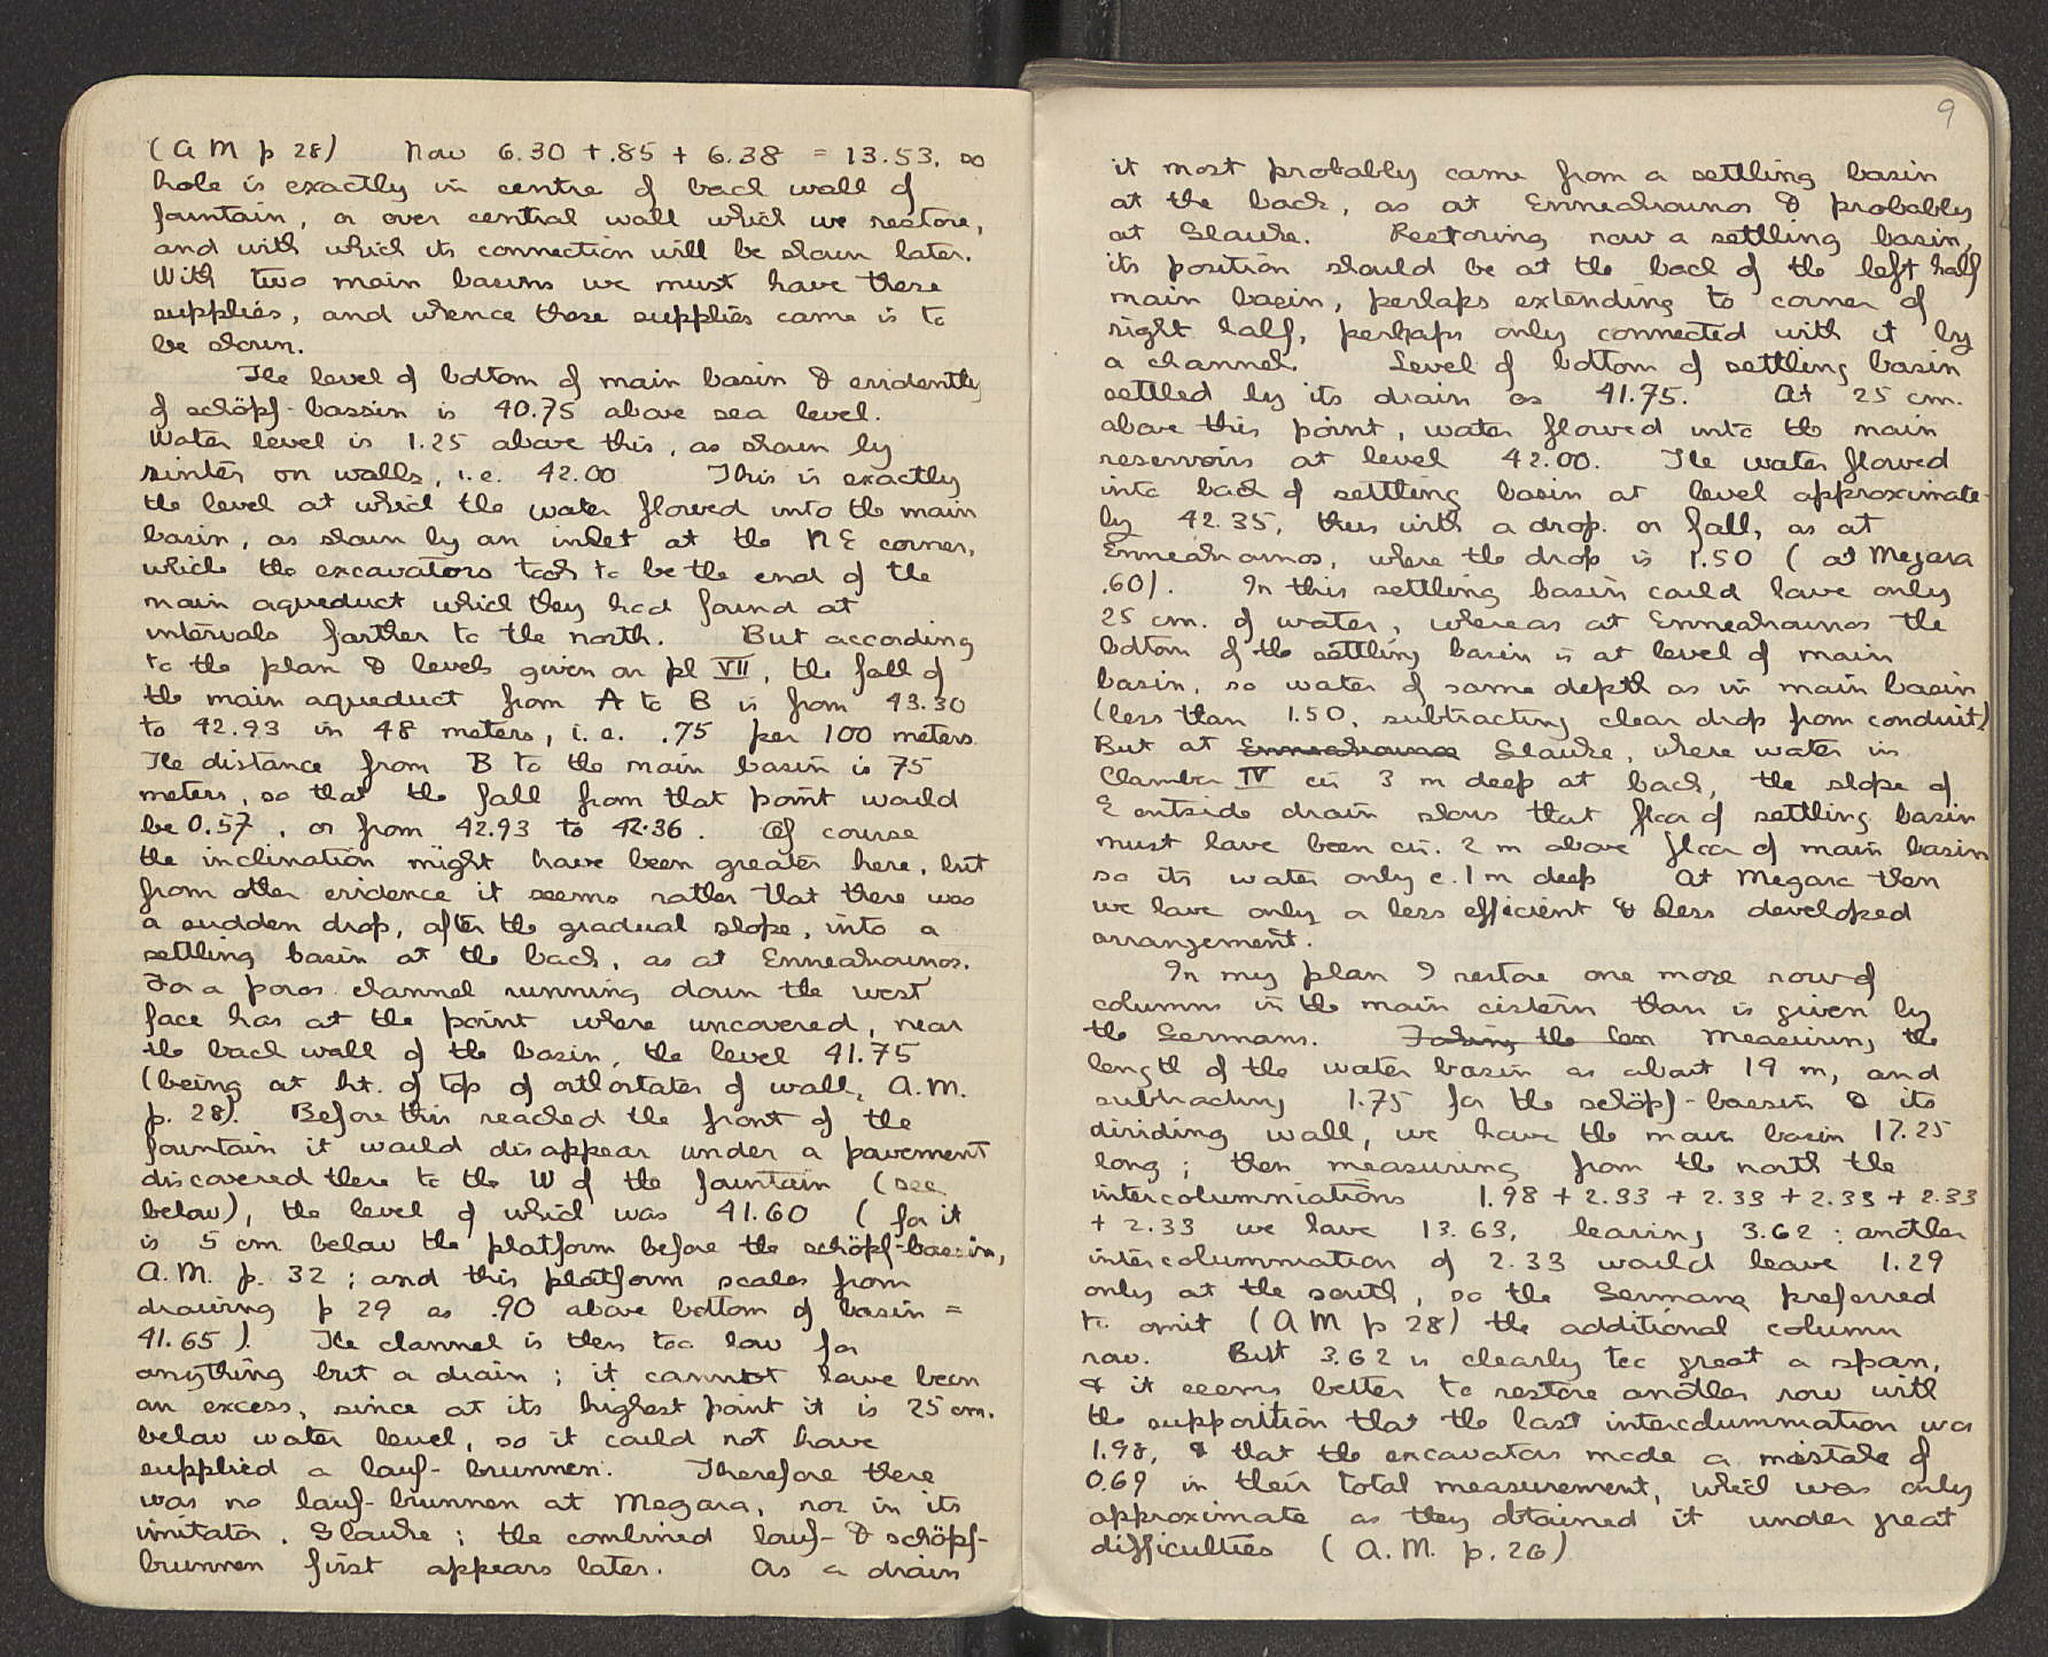 (A M p 28) Now 6.30 + .85 + 6.38 = 13.53, so
hole is exactly in centre of back wall of
fountain, or over central wall which we restore,
and with which its connection will be shown later.
With two main basins we must have these
supplies, and whence these supplies came is to
be shown.
The level of bottom of main basin & evidently
of schöpf-bassin is 40.75 above sea level.
Water level is 1.25 above this, as shown by
sinter on walls, i.e. 42.00 This is exactly
the level at which the water flowed into the main
basin, as shown by an inlet at the NE corner,
which the excavators took to be the end of the
main aqueduct which they had found at
intervals farther to the north. But according
to the plan & levels given on pl VII, the fall of
the main aqueduct from A to B is from 43.30
to 42.93 in 48 meters, i.e. .75 per 100 meters
The distance from B to the main basin is 75
meters, so that the fall from that point would
be 0.57, or from 42.93 to 42.36. Of course
the inclination might have been greater here, but
from other evidence it seems rather that there was
a sudden drop, after the gradual slope, into a
settling basin at the back, as at Enneakrounos.
For a poros channel running down the west
face has at the point where uncovered, near
the back wall of the basin, the level 41.75
(being at ht. of top of orthostates of wall, A.M.
p. 28). Before this reached the front of the
fountain it would disappear under a pavement
discovered there to the W of the fountain (see
below), the level of which was 41.60 (for it
is 5 cm below the platform before the schöpf-bassin,
A.M. p. 32; and this platform scales from
drawing p 29 as .90 above bottom of basin =
41.65). The channel is then too low for
anything but a drain; it cannot have been
an excess, since at its highest point it is 25 cm.
below water level, so it could not have
supplied a lauf-brunnen. Therefore there
was no lauf-brunnen at Megara, nor in its
imitator, Glauke; the combined lauf- & schöpf-
brunnen first appears later. As a drain
9
it most probably came from a settling basin
at the back, as at Enneakrounos & probably
at Glauke. Restoring now a settling basin,
its position should be at the back of the left half
main basin, perhaps extending to corner of
right half, perhaps only connected with it by
a channel. Level of bottom of settling basin
settled by its drain as 41.75. At 25 cm.
above this point, water flowed into the main
reservoirs at level 42.00. The water flowed
into back of settling basin at level approximate-
ly 42.35, thus with a drop. or fall, as at
Enneakrounos, where the drop is 1.50 (at Megara
.60). In this settling basin could have only
25 cm. of water, whereas at Enneakrounos the
bottom of the settling basin is at level of main
basin, so water of same depth as in main basin
(less than 1.50, subtracting clear drop from conduit)
But at Enneakrounos Glauke, where water in
Chamber IV is 3 m deep at back, the slope of
E outside drain shows that floor of settling basin
must have been 2 m above floor of main basin
so its water only c. 1 m deep At Megara then
we have only a less efficient & less developed
arrangement.
In my plan I restore one more row of
columns in the main cistern than is given by
the Germans. Taking the len Measuring the
length of the water basin as about 19 m, and
subtracting 1.75 for the schöpf-bassin & its
dividing wall, we have the main basin 17.25
long; then measuring from the north the
intercolumniations 1.98 + 2.33 + 2.33 + 2.33 + 2.33
+ 2.33 we have 13.63, leaving 3.62; another
intercolumniation of 2.33 would leave 1.29
only at the south, so the Germans preferred
to omit (A M p 28) the additional column
row. But 3.62 is clearly too great a span,
& it seems better to restore another row with
the supposition that the last intercolumniation was
1.98, & that the excavators made a mistake of
0.69 in their total measurement, which was only
approximate as they obtained it under great
difficulties (A.M. p. 26)